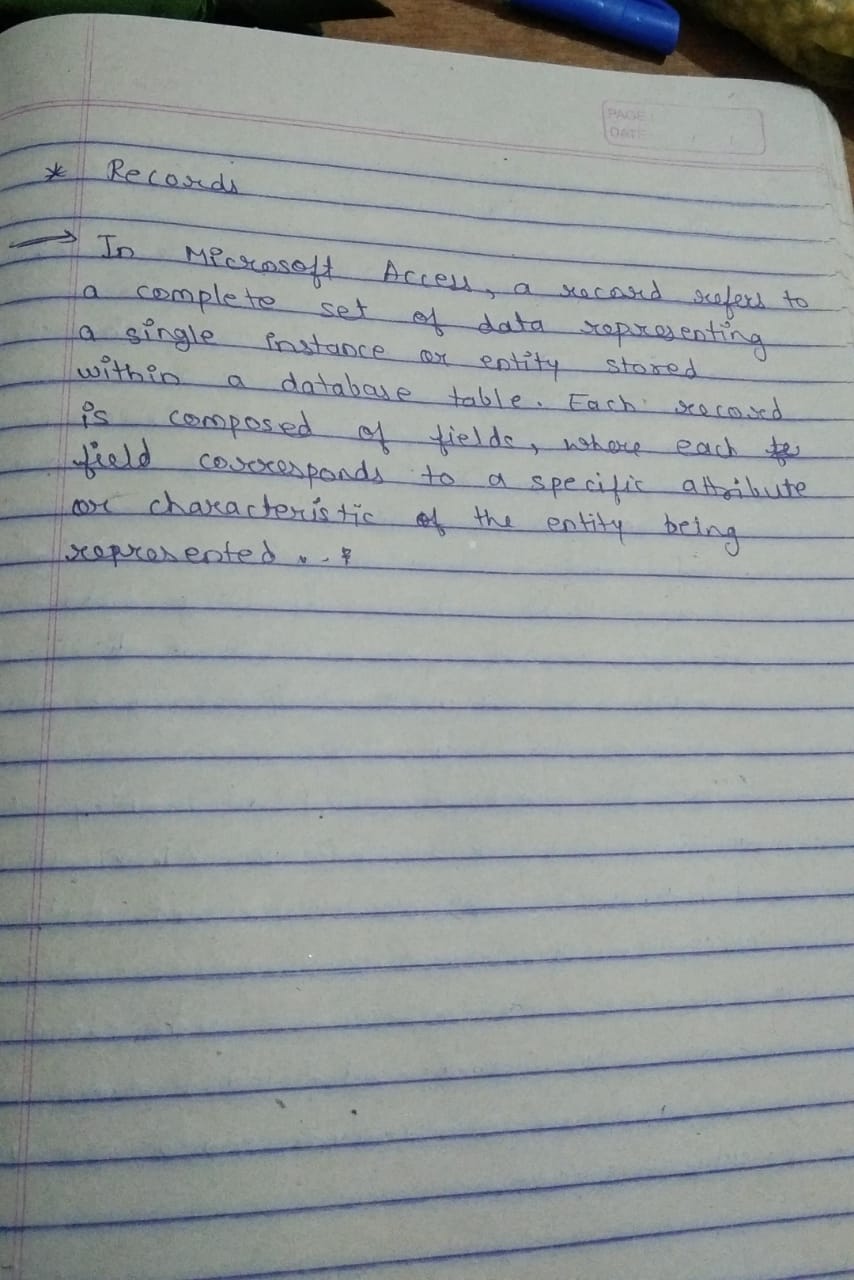 PAGE:
DATE:
* Records
→ In Microsoft Access, a record refers to
a complete set of data representing
a single instance or entity stored
within a database table. Each record
is composed of fields, where each
field corresponds to a specific attribute
or characteristic of the entity being
represented...